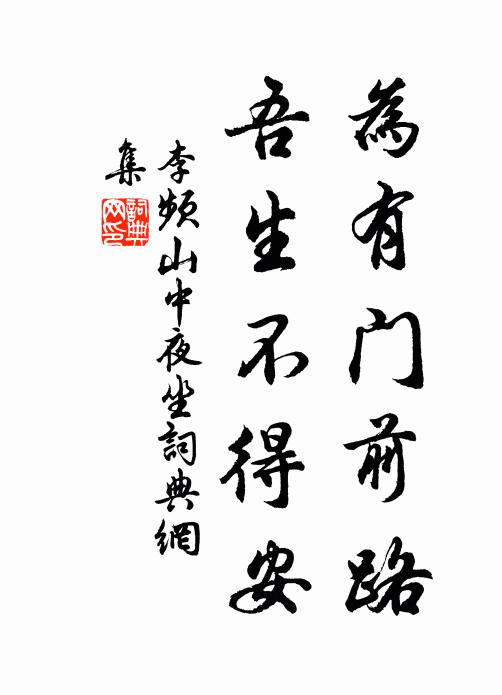 為有門前路
吾生不得安
李頻山中夜坐詞典網
集
詞典
网印